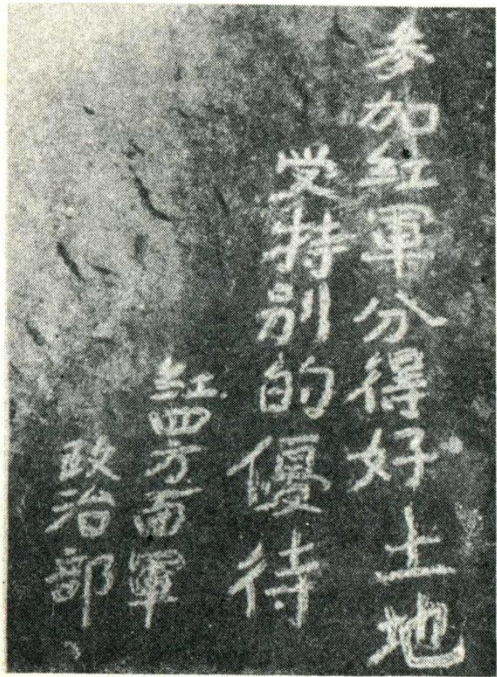 参加紅軍分得好土地
受持别的優待
紅四方面軍
政治部